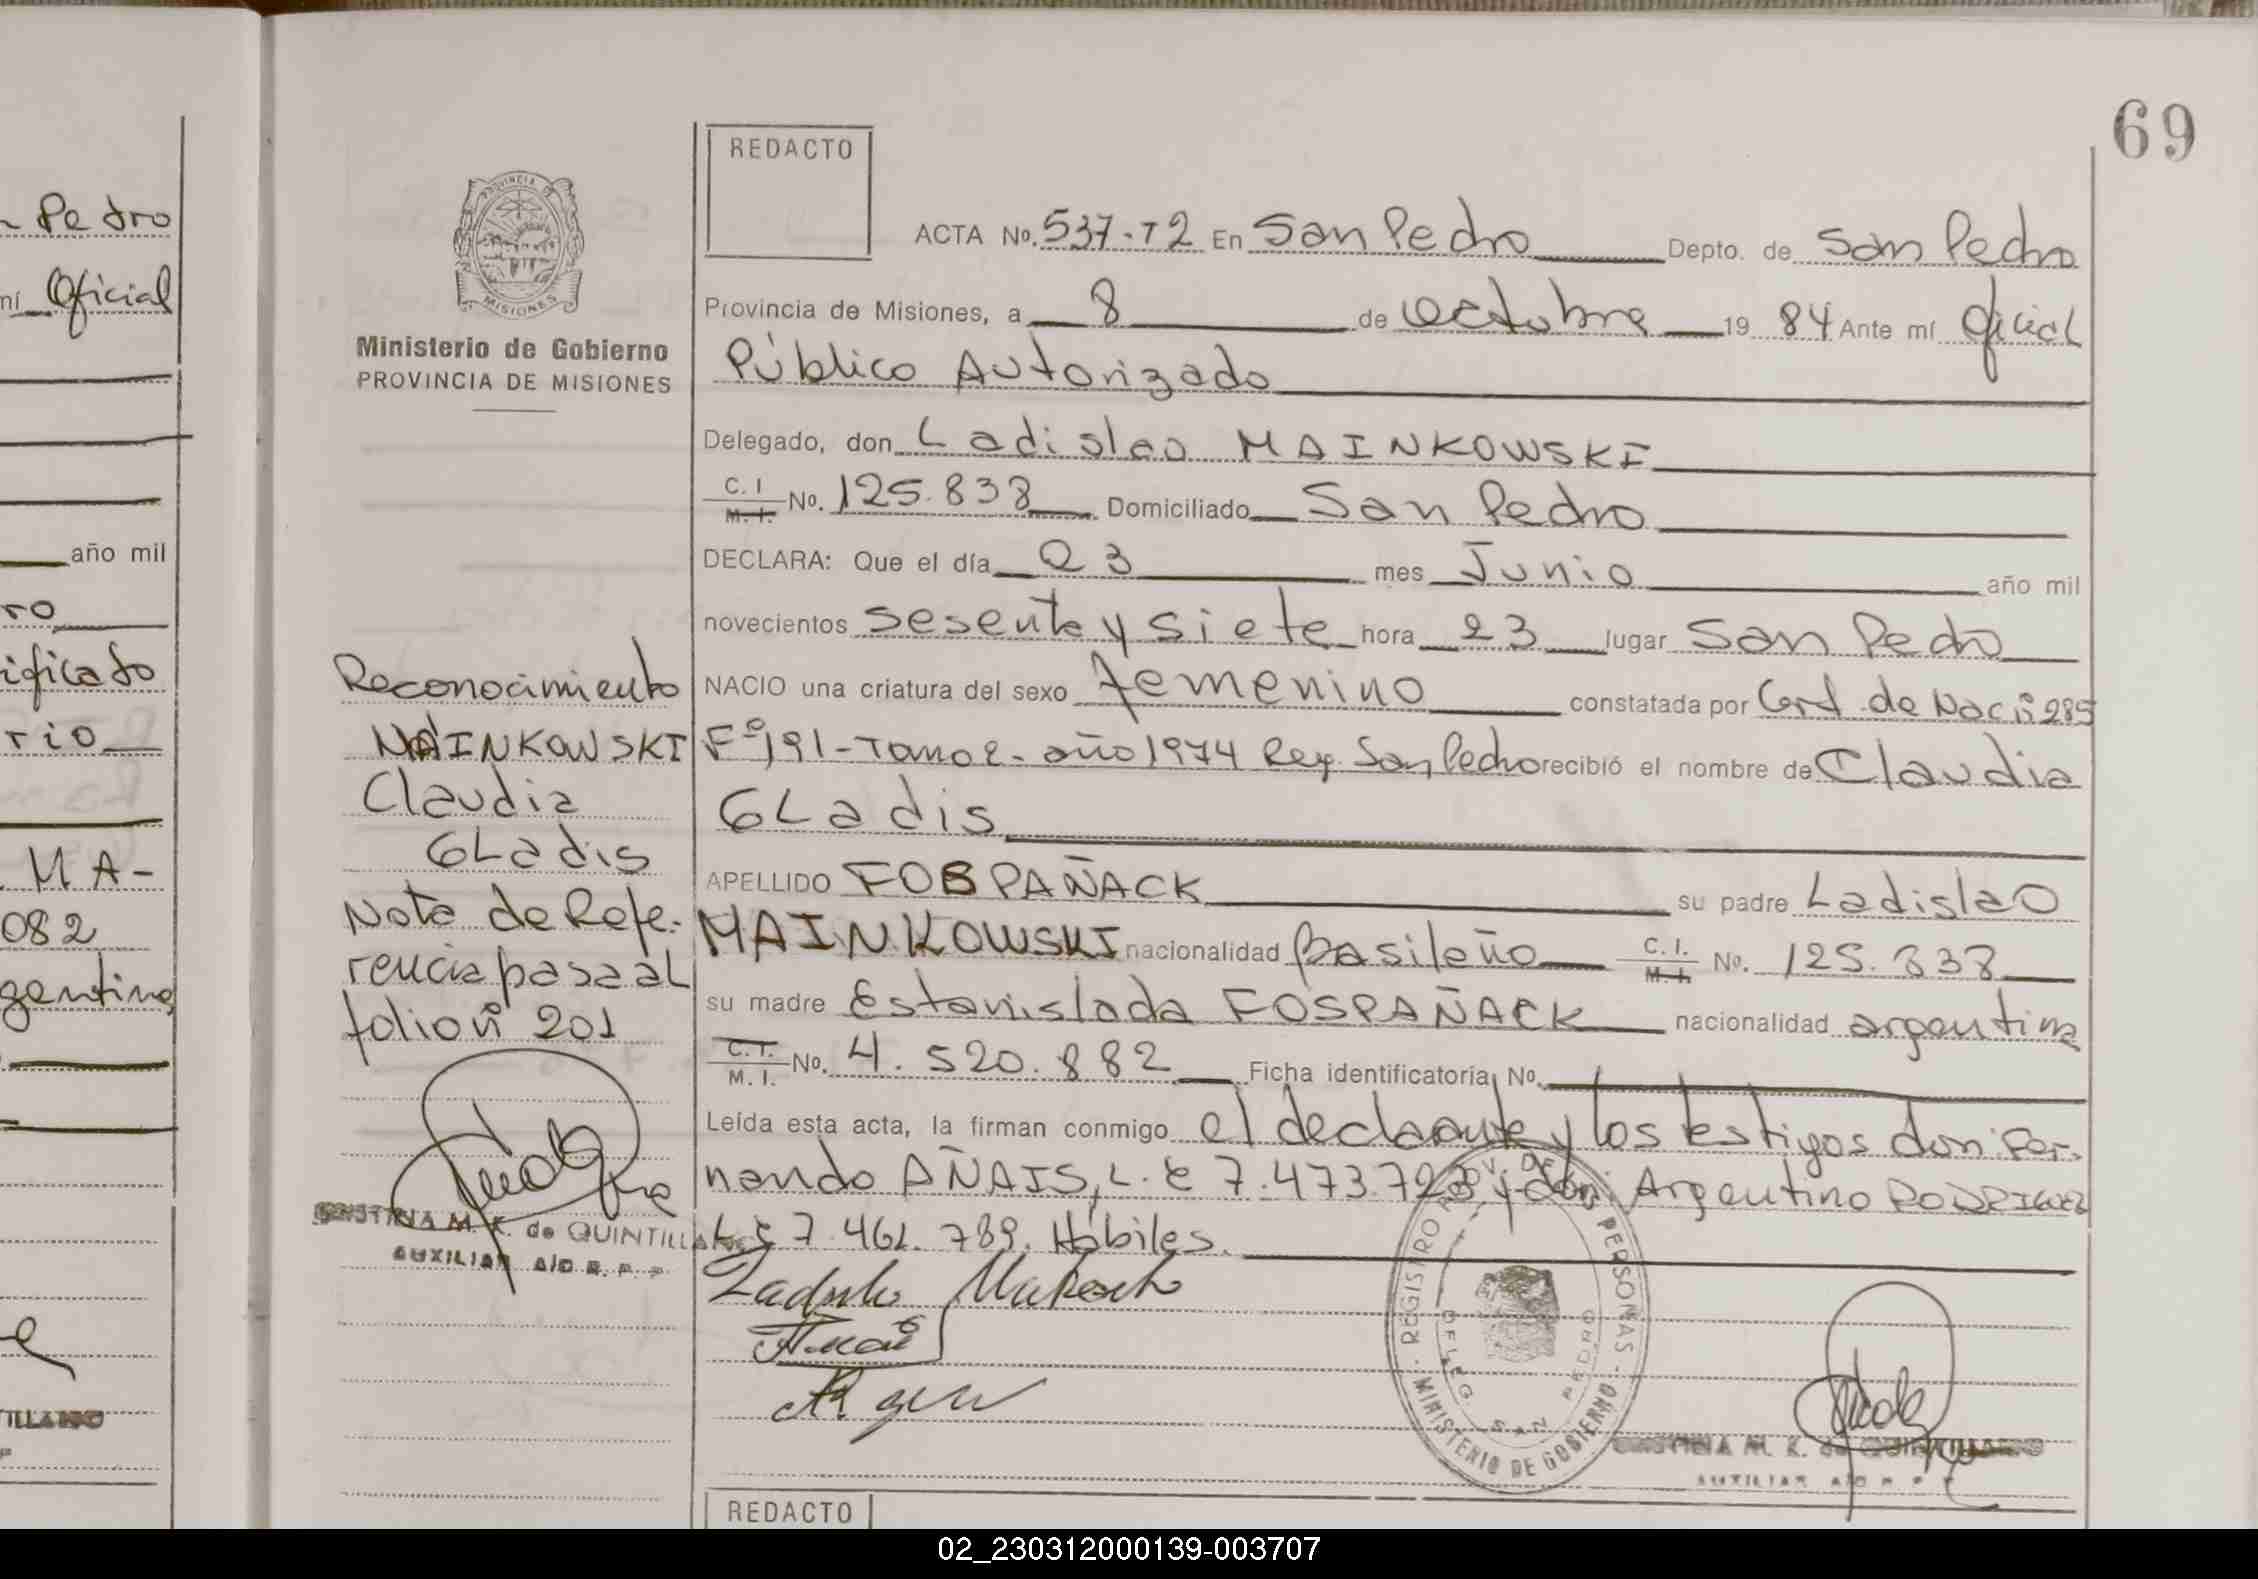 69
n Pedro
mí Oficial
año mil
ro
ificato
rio
MA-
082
gentina
TILLANO
PROVINCIA DE
MISIONES
Ministerio de Gobierno
PROVINCIA DE MISIONES
Reconocimiento
MAINKOWSKI
Claudia
GLadis
Nota de Refe-
rencia pasa al
folio nº 201
CRISTINA M. K. de QUINTILLANO
AUXILIAR A/C R. P. P.
REDACTO
ACTA No. 537-T2 En San Pedro Depto. de San Pedro
Provincia de Misiones, a 8 de Octubre 19 84 Ante mí Oficial
Público Autorizado
Delegado, don Ladislao MAINKOWSKI
C. I M. I. No. 125.838 Domiciliado San Pedro
DECLARA: Que el día 23 mes Junio año mil
novecientos sesenta y siete hora 23 lugar San Pedro
NACIO una criatura del sexo femenino constatada por Cert. de Nac nº 285
Fº 191-Tomo 2- año 1974 Reg. San Pedro recibió el nombre de Claudia
GLadis
APELLIDO FOSPAÑACK su padre Ladislao
MAINKOWSKI nacionalidad Brasileño C. I. M. I. No. 125.838
su madre Estanislada FOSPAÑACK nacionalidad argentina
C. I. M. I. No. 4.520.882 Ficha identificatoria No.
Leída esta acta, la firman conmigo el declarante y los testigos don Fer-
nando AÑAIS, L. E 7.473.723 y don Argentino RODRIGUEZ
L E 7.461.789. Hábiles.
REGISTRO PROV. DE PERSONAS
MINISTERIO DE GOBIERNO
DELEG. SAN PEDRO
CRISTINA M. K. de QUINTILLANO
AUXILIAR A/C R. P. P.
REDACTO
02_230312000139-003707